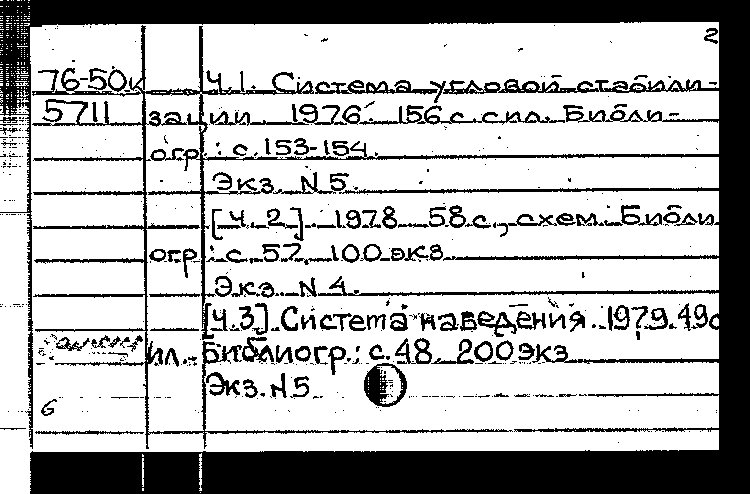 2
76-50к Ч.1. Система угловой стабили-
5711 зации. 1976. 156 с. с ил. Библи-
огр.: с. 153-154.
Экз. N 5.
[Ч. 2]. 1978 58 с., схем. Библи
огр.: с. 57. 100 экз
Экз. N 4.
[Ч.3] Система наведения. 1979. 49с
ил.- Библиогр.: с. 48. 200 экз
Экз. N 5
6